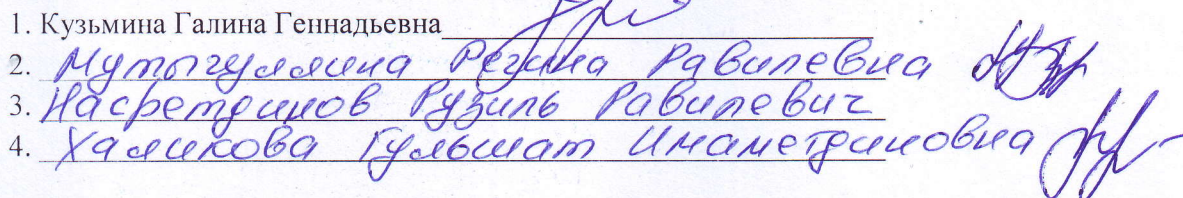 1. Кузьмина Галина Геннадьевна
2. Мутыгуллина Регина Равилевна
3. Насретдинов Рузиль Равилевич
4. Халикова Гульшат Имаметдиновна